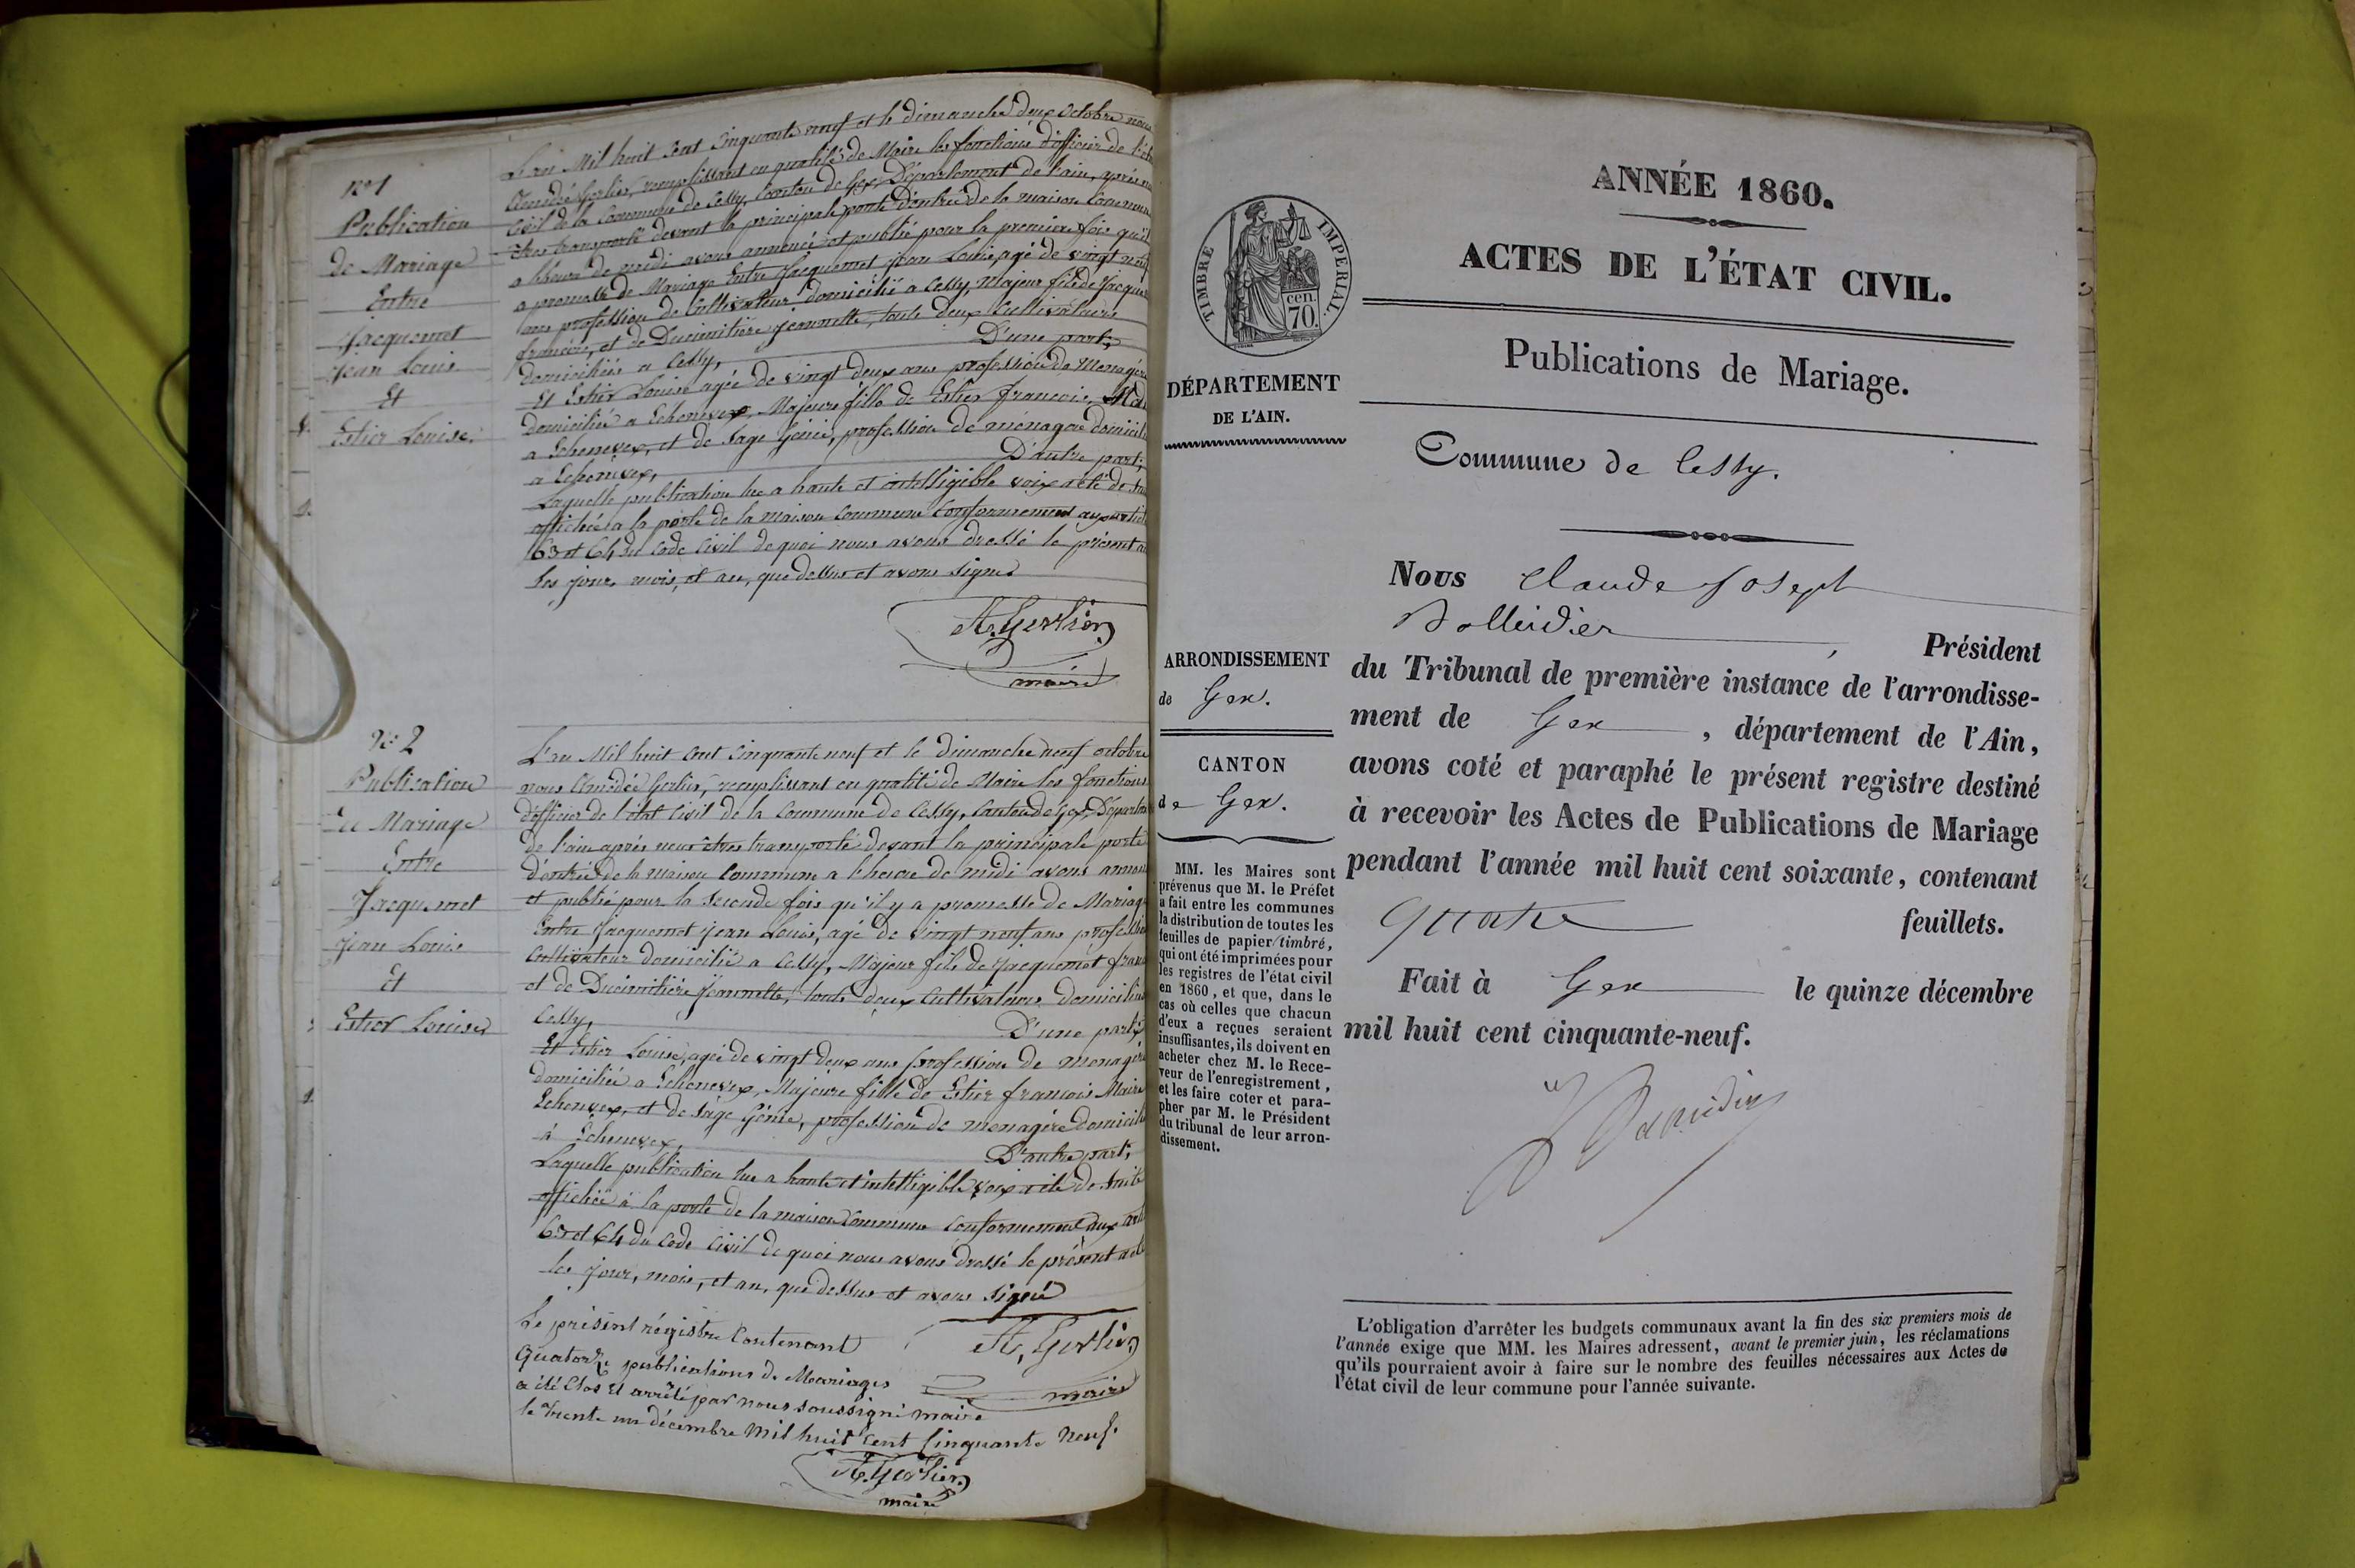 n° 1
Publication
de Mariage
Entre
Jacquemet
Jean Louis
Et
Estier Louise.
L'an Mil huit Cent Cinquante neuf et le dimanche deux Octobre nous
Amédée Gerlier, remplissant en qualité de Maire les fonctions d'officier de l'état
Civil de la Commune de Cessy, Canton de Gex, Département de l'ain, après nous
êtres transporté devant la principale porte d'entrée de la maison Commune
a l'heure de midi avons annoncé et publié pour la première fois qu'il
a promesse de Mariage Entre Jacquemet Jean Louis agé de vingt neuf
ans profession de Cultivateur domicilié a Cessy, Majeur fils de Jacquemet
francois, et de Ducimitière Jeannette, touts deux Cultivateurs
domiciliés a Cessy, D'une part,
Et Estier Louise agée de vingt deux ans profession de Menagère
domiciliée a Echenevex, Majeure fille de Estier francois,
a Echenevex, et de Sage Génie, profession de ménagère domicili
a Echenevex, D'autre part;
Laquelle publication lue a haute et intelligible voix a été de
affichée a la porte de la maison Commune Conformement aux articl
63 et 64 du Code Civil de quoi nous avons dressé le présent a
les jour, mois, et an, que dessus et avons signé
A. Gerlier
maire
N° 2
Publication
De Mariage
Entre
Jacquemet
Jean Louis
Et
Estier Louise
L'an Mil huit Cent Cinquante neuf et le dimanche neuf octobre
nous Amédée Gerlier, remplissant en qualité de Maire les fonctions
d'officier de l'état Civil de la Commune de Cessy, Canton de Gex, Départem
de l'ain après nous êtres transporté devant la principale porte
d'entrée de la maison Commune a l'heure de midi avons annon
et publié pour la seconde fois qu'il y a promesse de Mariage
Entre Jacquemet Jean Louis, agé de vingt neuf ans profession
Cultivateur domicilié a Cessy, Majeur fils de Jacquemet fran
et de Ducimitière Jeannette, touts deux Cultivateurs domiciliés
Cessy, D'une part,
Et Estier Louise, agée de vingt deux ans profession de menagère
domiciliée a Echenevex, Majeure fille de Estier francois Maire
Echenevex, et de Sage Génie, profession de menagère domicili
à Echenevex, D'autre part,
Laquelle publication lue a haute et intelligible voix a été de suite
affichée à la porte de la maison Commune Conformement aux arti
63 et 64 du Code Civil de quoi nous avons dressé le présent acte
les jour, mois, et an, que dessus et avons signé
A. Gerlier
maire
Le présent régistre Contenant
Quatorze publications de Mariages
a été Clos et arrêté par nous soussigné maire
le trente un décembre mil huit cent Cinquante neuf.
A. Gerlier
maire
TIMBRE IMPERIAL.
cen.
70.
DÉPARTEMENT
DE L'AIN.
ARRONDISSEMENT
de Gex.
CANTON
de Gex.
MM. les Maires sont
prévenus que M. le Préfet
a fait entre les communes
la distribution de toutes les
feuilles de papier timbré,
qui ont été imprimées pour
les registres de l'état civil
en 1860, et que, dans le
cas où celles que chacun
d'eux a reçues seraient
insuffisantes, ils doivent en
acheter chez M. le Rece-
veur de l'enregistrement,
et les faire coter et para-
pher par M. le Président
du tribunal de leur arron-
dissement.
ANNÉE 1860.
ACTES DE L'ÉTAT CIVIL.
Publications de Mariage.
Commune de Cessy.
Nous Claude Joseph
Balleidier, Président
du Tribunal de première instance de l'arrondisse-
ment de Gex, département de l'Ain,
avons coté et paraphé le présent registre destiné
à recevoir les Actes de Publications de Mariage
pendant l'année mil huit cent soixante, contenant
quatre feuillets.
Fait à Gex le quinze décembre
mil huit cent cinquante-neuf.
L'obligation d'arrêter les budgets communaux avant la fin des six premiers mois de
l'année exige que MM. les Maires adressent, avant le premier juin, les réclamations
qu'ils pourraient avoir à faire sur le nombre des feuilles nécessaires aux Actes de
l'état civil de leur commune pour l'année suivante.